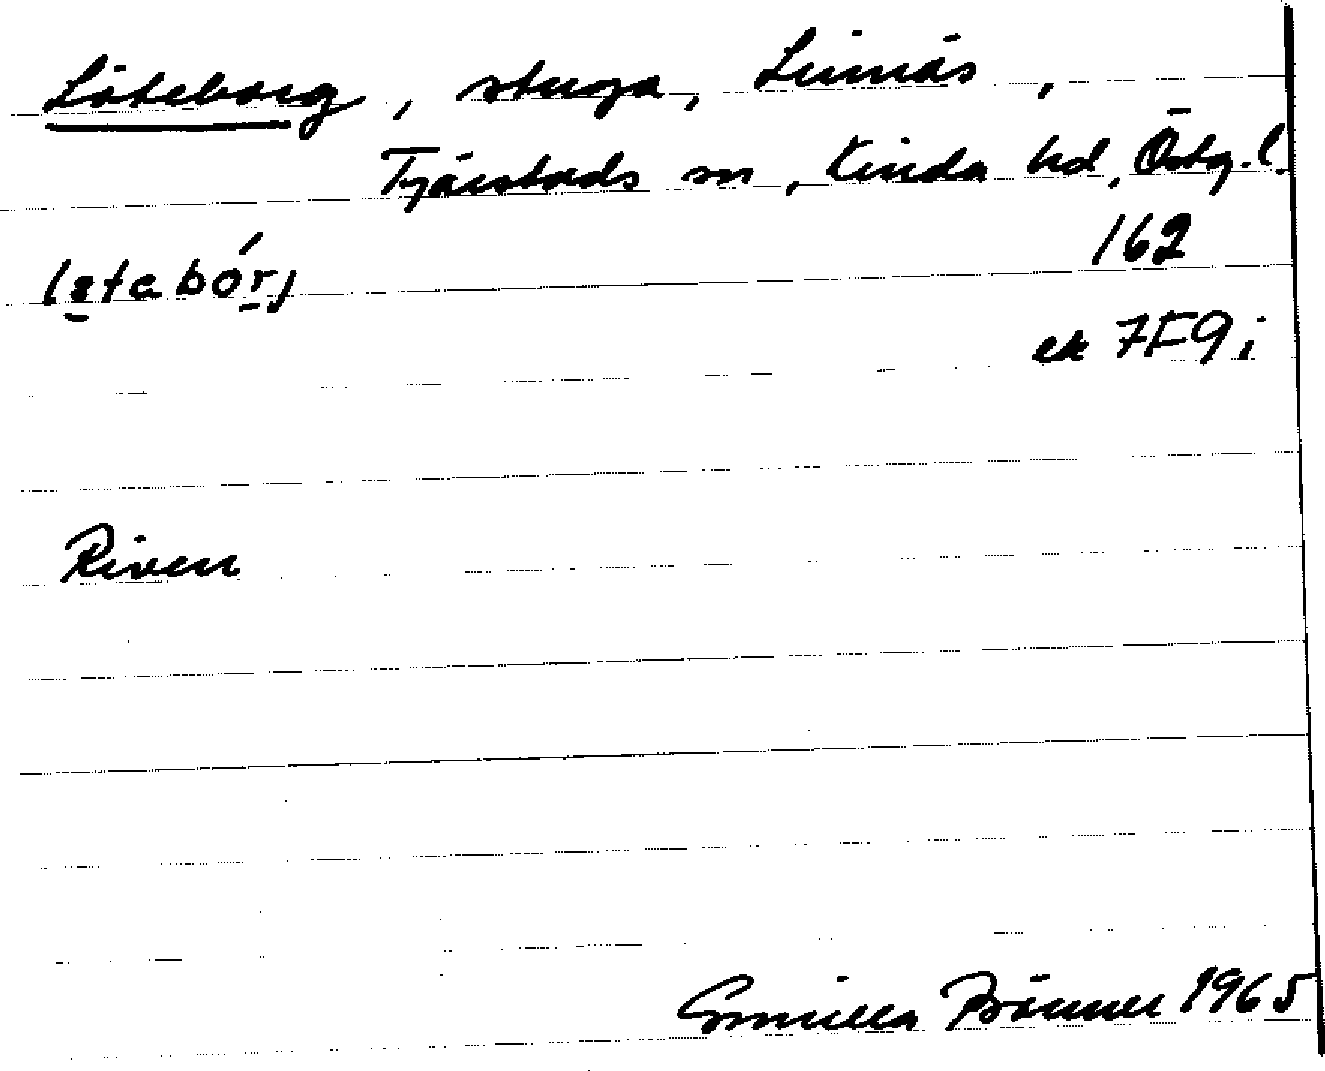 Löteborg, stuga, Limnäs,
Tjärstads sn, Kinda hd, Östg. l.
162
ek 7F9i
Riven
Gunilla Bönner 1965